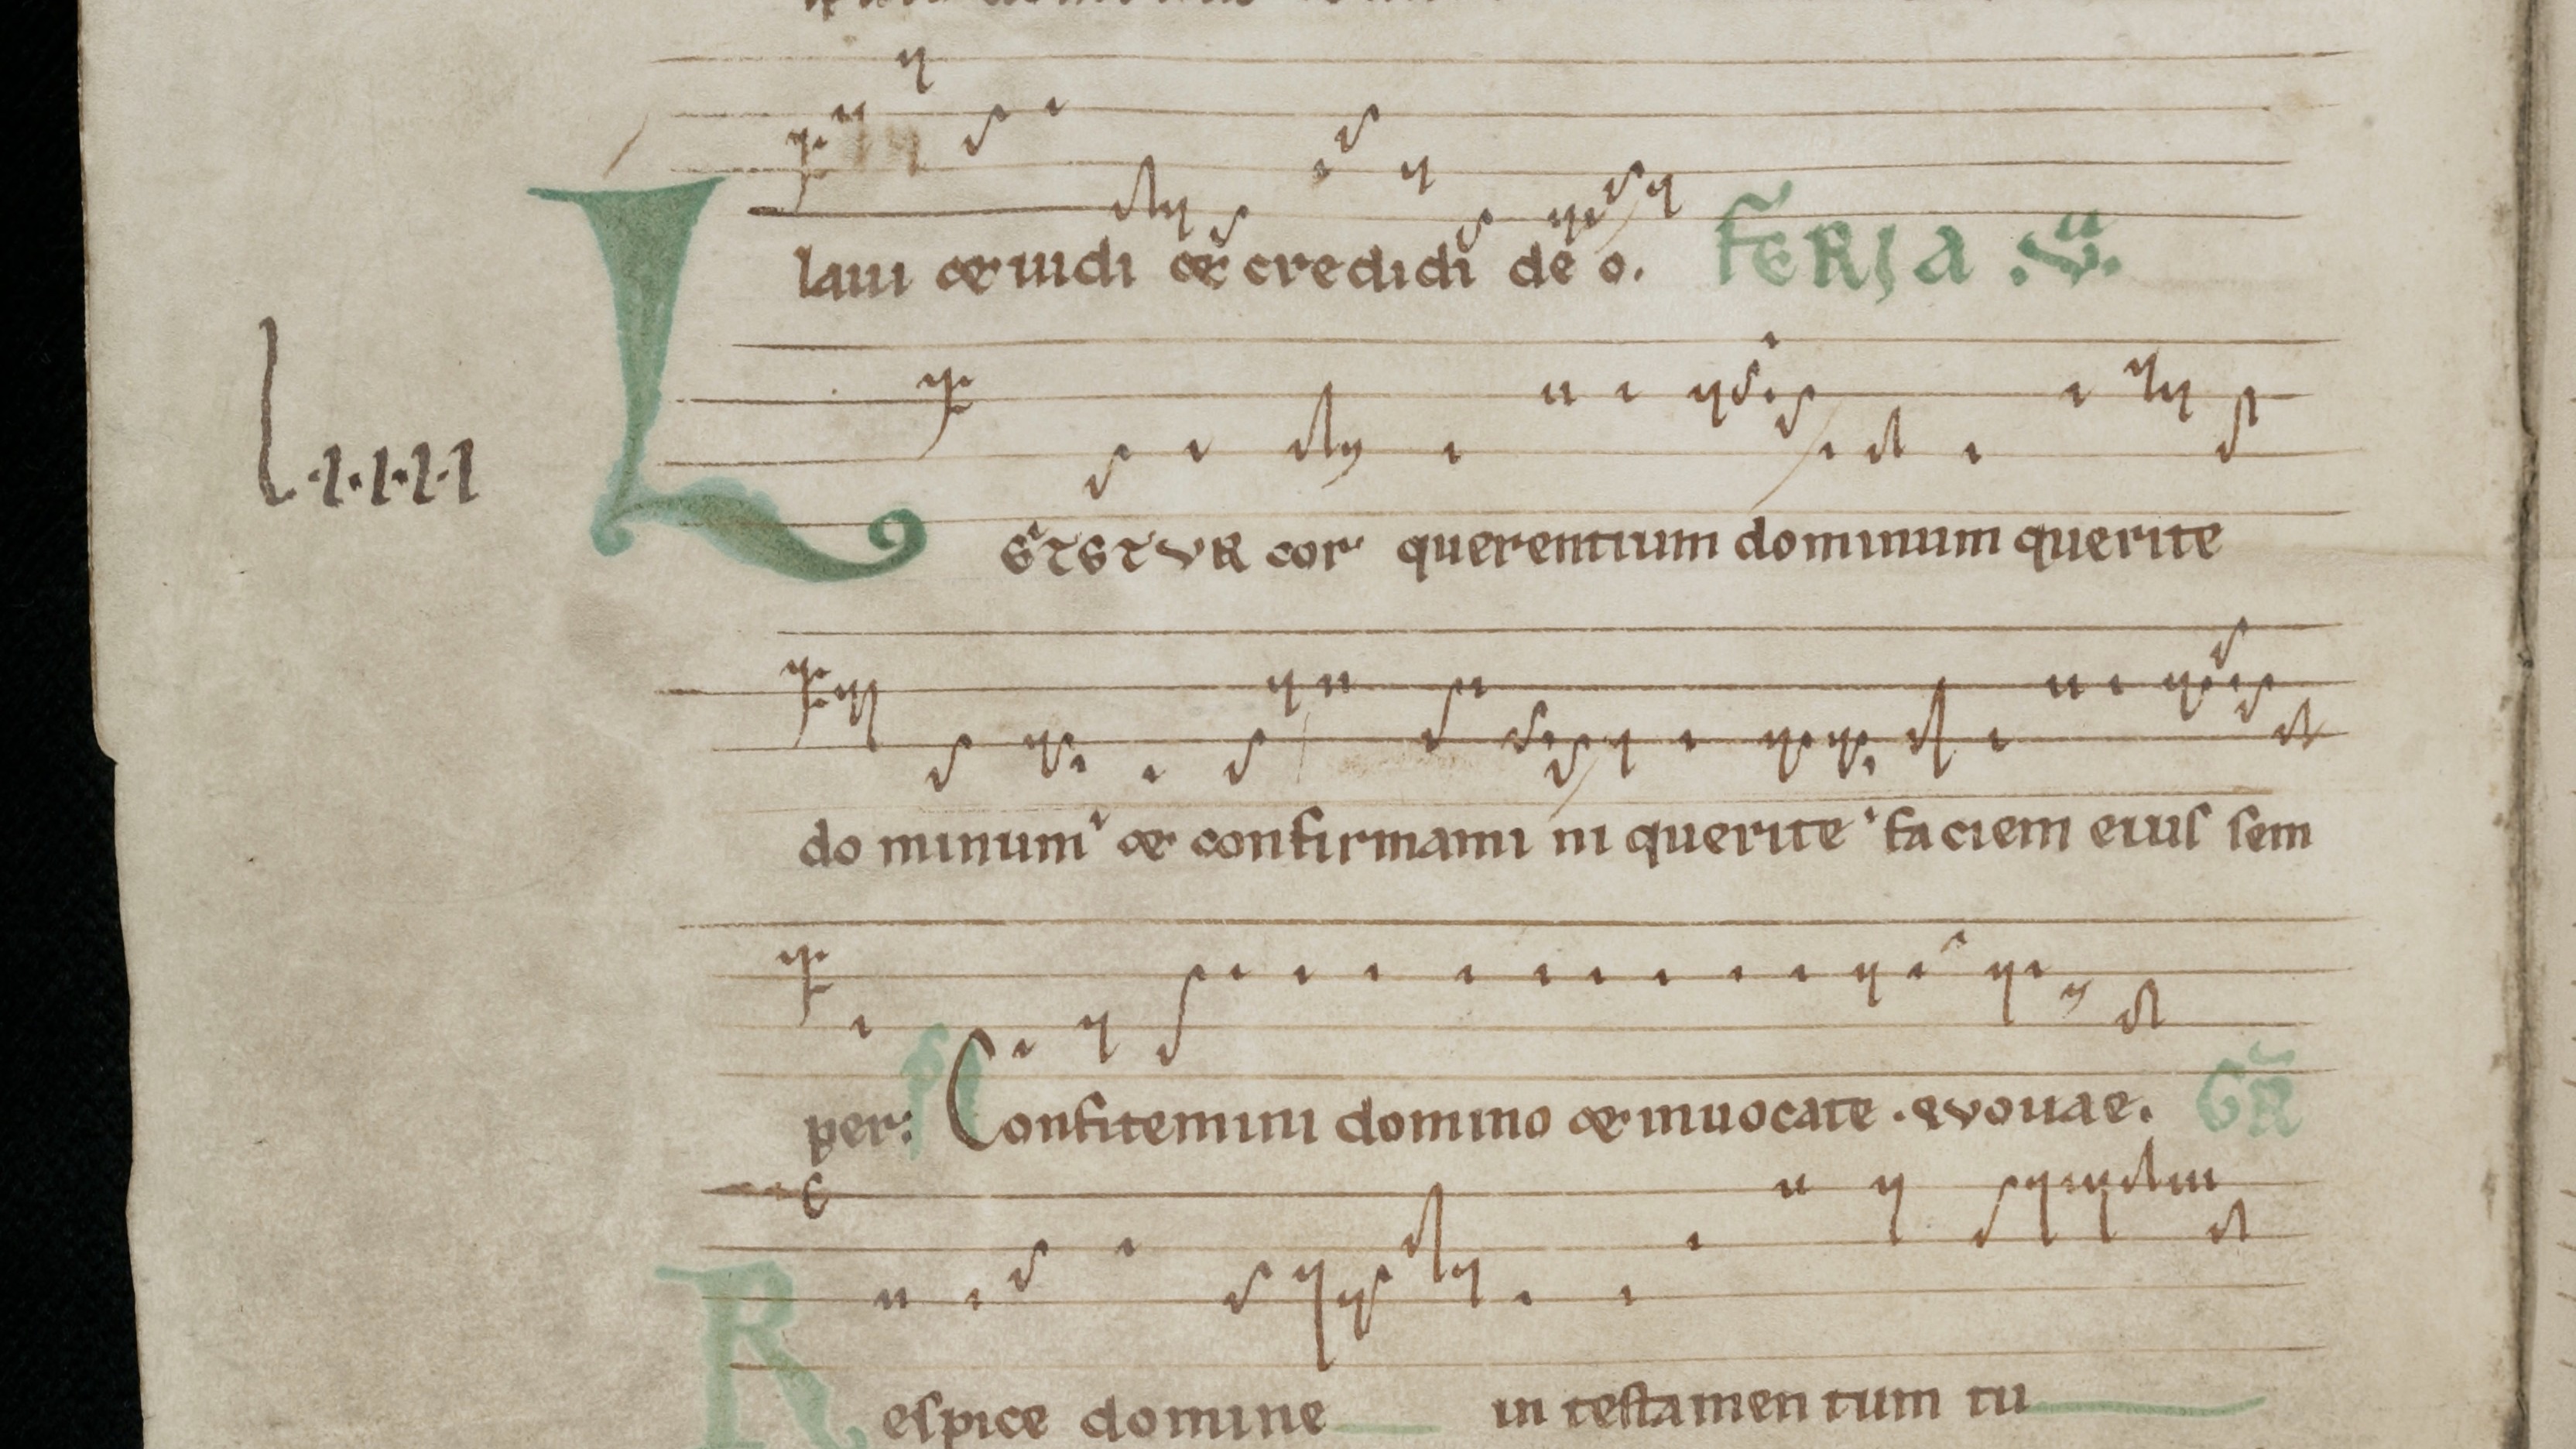 laui & uidi & credidi deo. FERIA .v.a
L.I.I.I.I
LETETUR cor querentium dominum querite
dominum & confirmamini querite faciem eius sem
per: ps Confitemini domino & inuocate . evouae. GR
Respice domine in testamentum tu